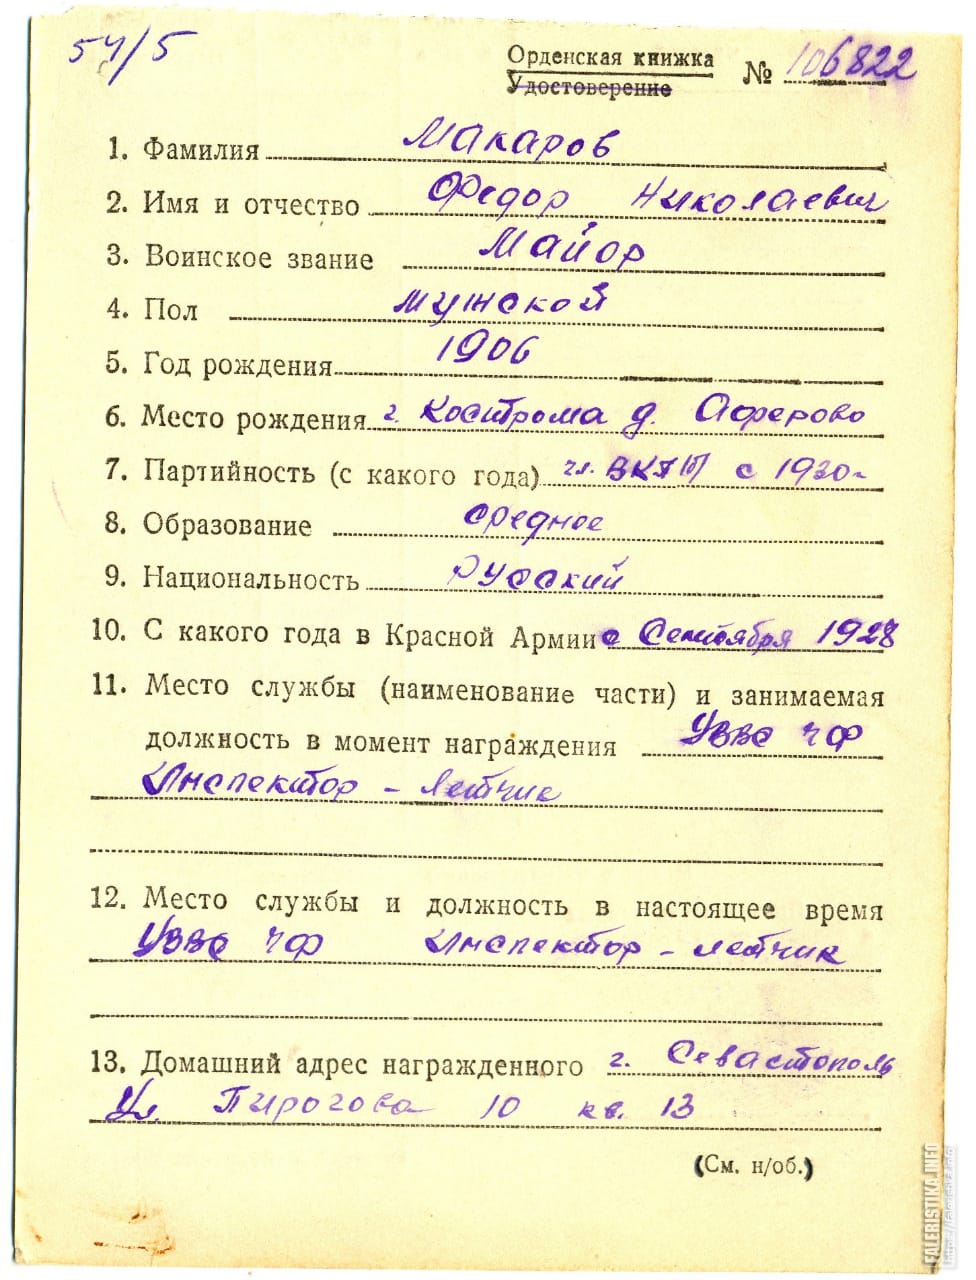 54/5
Орденская книжка № 106822
Удостоверение
1. Фамилия Макаров
2. Имя и отчество Федор Николаевич
3. Воинское звание Майор
4. Пол мужской
5. Год рождения 1906
6. Место рождения г. Кострома д. Аферово
7. Партийность (с какого года) чл. ВКП(б) с 1930г
8. Образование среднее
9. Национальность Русский
10. С какого года в Красной Армии с Сентября 1928
11. Место службы (наименование части) и занимаемая
должность в момент награждения УВВС ЧФ
Инспектор - летчик
12. Место службы и должность в настоящее время
УВВС ЧФ Инспектор - летчик
13. Домашний адрес награжденного г. Севастополь
Ул. Пирогова 10 кв. 13
(См. н/об.)
FALERISTIKA.INFO